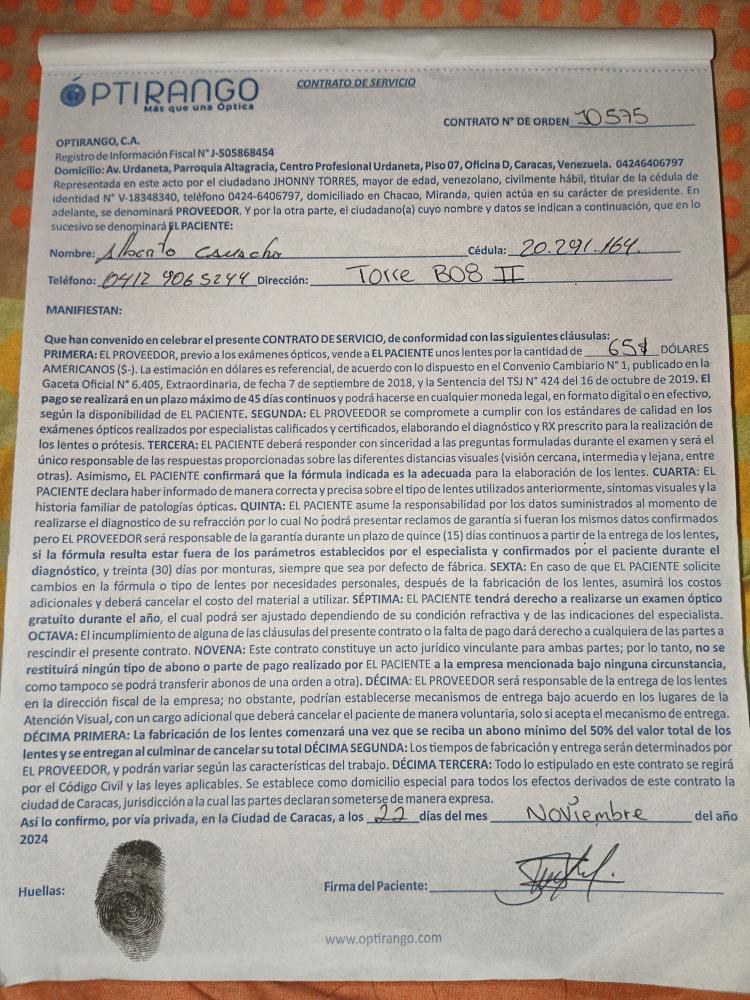 ÓPTIRANGO
Más que una Óptica
CONTRATO DE SERVICIO
CONTRATO N° DE ORDEN 10575
OPTIRANGO, C.A.
Registro de Información Fiscal N° J-505868454
Domicilio: Av. Urdaneta, Parroquia Altagracia, Centro Profesional Urdaneta, Piso 07, Oficina D, Caracas, Venezuela. 04246406797
Representada en este acto por el ciudadano JHONNY TORRES, mayor de edad, venezolano, civilmente hábil, titular de la cédula de
identidad N° V-18348340, teléfono 0424-6406797, domiciliado en Chacao, Miranda, quien actúa en su carácter de presidente. En
adelante, se denominará PROVEEDOR. Y por la otra parte, el ciudadano(a) cuyo nombre y datos se indican a continuación, que en lo
sucesivo se denominará EL PACIENTE:
Nombre: Alberto Cédula: 20.291.164.
Teléfono: 0412 9065244 Dirección: Torre BO8 II
MANIFIESTAN:
Que han convenido en celebrar el presente CONTRATO DE SERVICIO, de conformidad con las siguientes cláusulas:
PRIMERA: EL PROVEEDOR, previo a los exámenes ópticos, vende a EL PACIENTE unos lentes por la cantidad de 65$ DÓLARES
AMERICANOS ($-). La estimación en dólares es referencial, de acuerdo con lo dispuesto en el Convenio Cambiario N° 1, publicado en la
Gaceta Oficial N° 6.405, Extraordinaria, de fecha 7 de septiembre de 2018, y la Sentencia del TSJ N° 424 del 16 de octubre de 2019. El
pago se realizará en un plazo máximo de 45 días continuos y podrá hacerse en cualquier moneda legal, en formato digital o en efectivo,
según la disponibilidad de EL PACIENTE. SEGUNDA: EL PROVEEDOR se compromete a cumplir con los estándares de calidad en los
exámenes ópticos realizados por especialistas calificados y certificados, elaborando el diagnóstico y RX prescrito para la realización de
los lentes o prótesis. TERCERA: EL PACIENTE deberá responder con sinceridad a las preguntas formuladas durante el examen y será el
único responsable de las respuestas proporcionadas sobre las diferentes distancias visuales (visión cercana, intermedia y lejana, entre
otras). Asimismo, EL PACIENTE confirmará que la fórmula indicada es la adecuada para la elaboración de los lentes. CUARTA: EL
PACIENTE declara haber informado de manera correcta y precisa sobre el tipo de lentes utilizados anteriormente, síntomas visuales y la
historia familiar de patologías ópticas. QUINTA: EL PACIENTE asume la responsabilidad por los datos suministrados al momento de
realizarse el diagnostico de su refracción por lo cual No podrá presentar reclamos de garantía si fueran los mismos datos confirmados
pero EL PROVEEDOR será responsable de la garantía durante un plazo de quince (15) días continuos a partir de la entrega de los lentes,
si la fórmula resulta estar fuera de los parámetros establecidos por el especialista y confirmados por el paciente durante el
diagnóstico, y treinta (30) días por monturas, siempre que sea por defecto de fábrica. SEXTA: En caso de que EL PACIENTE solicite
cambios en la fórmula o tipo de lentes por necesidades personales, después de la fabricación de los lentes, asumirá los costos
adicionales y deberá cancelar el costo del material a utilizar. SÉPTIMA: EL PACIENTE tendrá derecho a realizarse un examen óptico
gratuito durante el año, el cual podrá ser ajustado dependiendo de su condición refractiva y de las indicaciones del especialista.
OCTAVA: El incumplimiento de alguna de las cláusulas del presente contrato o la falta de pago dará derecho a cualquiera de las partes a
rescindir el presente contrato. NOVENA: Este contrato constituye un acto jurídico vinculante para ambas partes; por lo tanto, no se
restituirá ningún tipo de abono o parte de pago realizado por EL PACIENTE a la empresa mencionada bajo ninguna circunstancia,
como tampoco se podrá transferir abonos de una orden a otra). DÉCIMA: EL PROVEEDOR será responsable de la entrega de los lentes
en la dirección fiscal de la empresa; no obstante, podrían establecerse mecanismos de entrega bajo acuerdo en los lugares de la
Atención Visual, con un cargo adicional que deberá cancelar el paciente de manera voluntaria, solo si acepta el mecanismo de entrega.
DÉCIMA PRIMERA: La fabricación de los lentes comenzará una vez que se reciba un abono mínimo del 50% del valor total de los
lentes y se entregan al culminar de cancelar su total DÉCIMA SEGUNDA: Los tiempos de fabricación y entrega serán determinados por
EL PROVEEDOR, y podrán variar según las características del trabajo. DÉCIMA TERCERA: Todo lo estipulado en este contrato se regirá
por el Código Civil y las leyes aplicables. Se establece como domicilio especial para todos los efectos derivados de este contrato la
ciudad de Caracas, jurisdicción a la cual las partes declaran someterse de manera expresa.
Así lo confirmo, por vía privada, en la Ciudad de Caracas, a los 22 días del mes Noviembre del año
2024
Huellas:
Firma del Paciente:
www.optirango.com